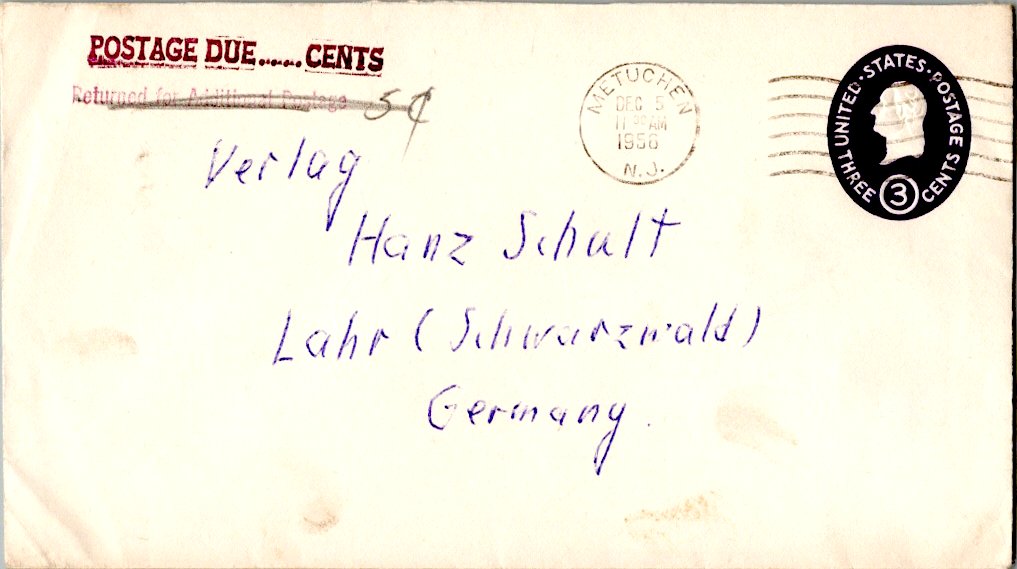 POSTAGE DUE...... CENTS
Returned for Additional Postage 5¢
METUCHEN
DEC 5
11 AM
1956
N.J.
UNITED·STATES·POSTAGE
THREE 3 CENTS
Verlag
Hanz Schalt
Lahr (Schwarzwald)
Germany.